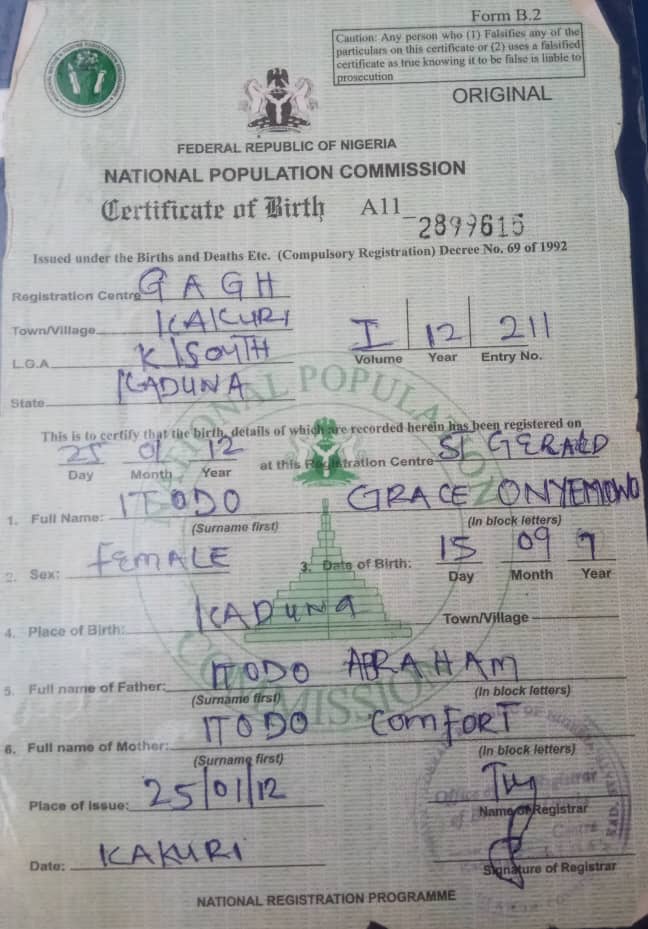 Form B.2
Caution: Any person who (1) Falsifies any of the
particulars on this certificate or (2) uses a falsified
certificate as true knowing it to be false is liable to
prosecution
ORIGINAL
FEDERAL REPUBLIC OF NIGERIA
NATIONAL POPULATION COMMISSION
Certificate of Birth A11 - 2899615
Issued under the Births and Deaths Etc. (Compulsory Registration) Decree No. 69 of 1992
Registration Centre GAGH
Town/Village KAKURI
L.G.A K/SOUTH
I 12 211
Volume Year Entry No.
State KADUNA
This is to certify that the birth, details of which are recorded herein has been registered on
25 01 12 at this Registration Centre St GERALD
Day Month Year
1. Full Name: ITODO GRACE ONYEMOWO
(Surname first) (In block letters)
2. Sex: FEMALE 3. Date of Birth: 15 09 9
Day Month Year
4. Place of Birth: KADUNA Town/Village
5. Full name of Father: ITODO ABRAHAM
(Surname first) (In block letters)
6. Full name of Mother: ITODO COMFORT
(Surname first) (In block letters)
Place of Issue: 25/01/12
Name of Registrar
Date: KAKURI
Signature of Registrar
NATIONAL REGISTRATION PROGRAMME
NATIONAL POPULATION COMMISSION